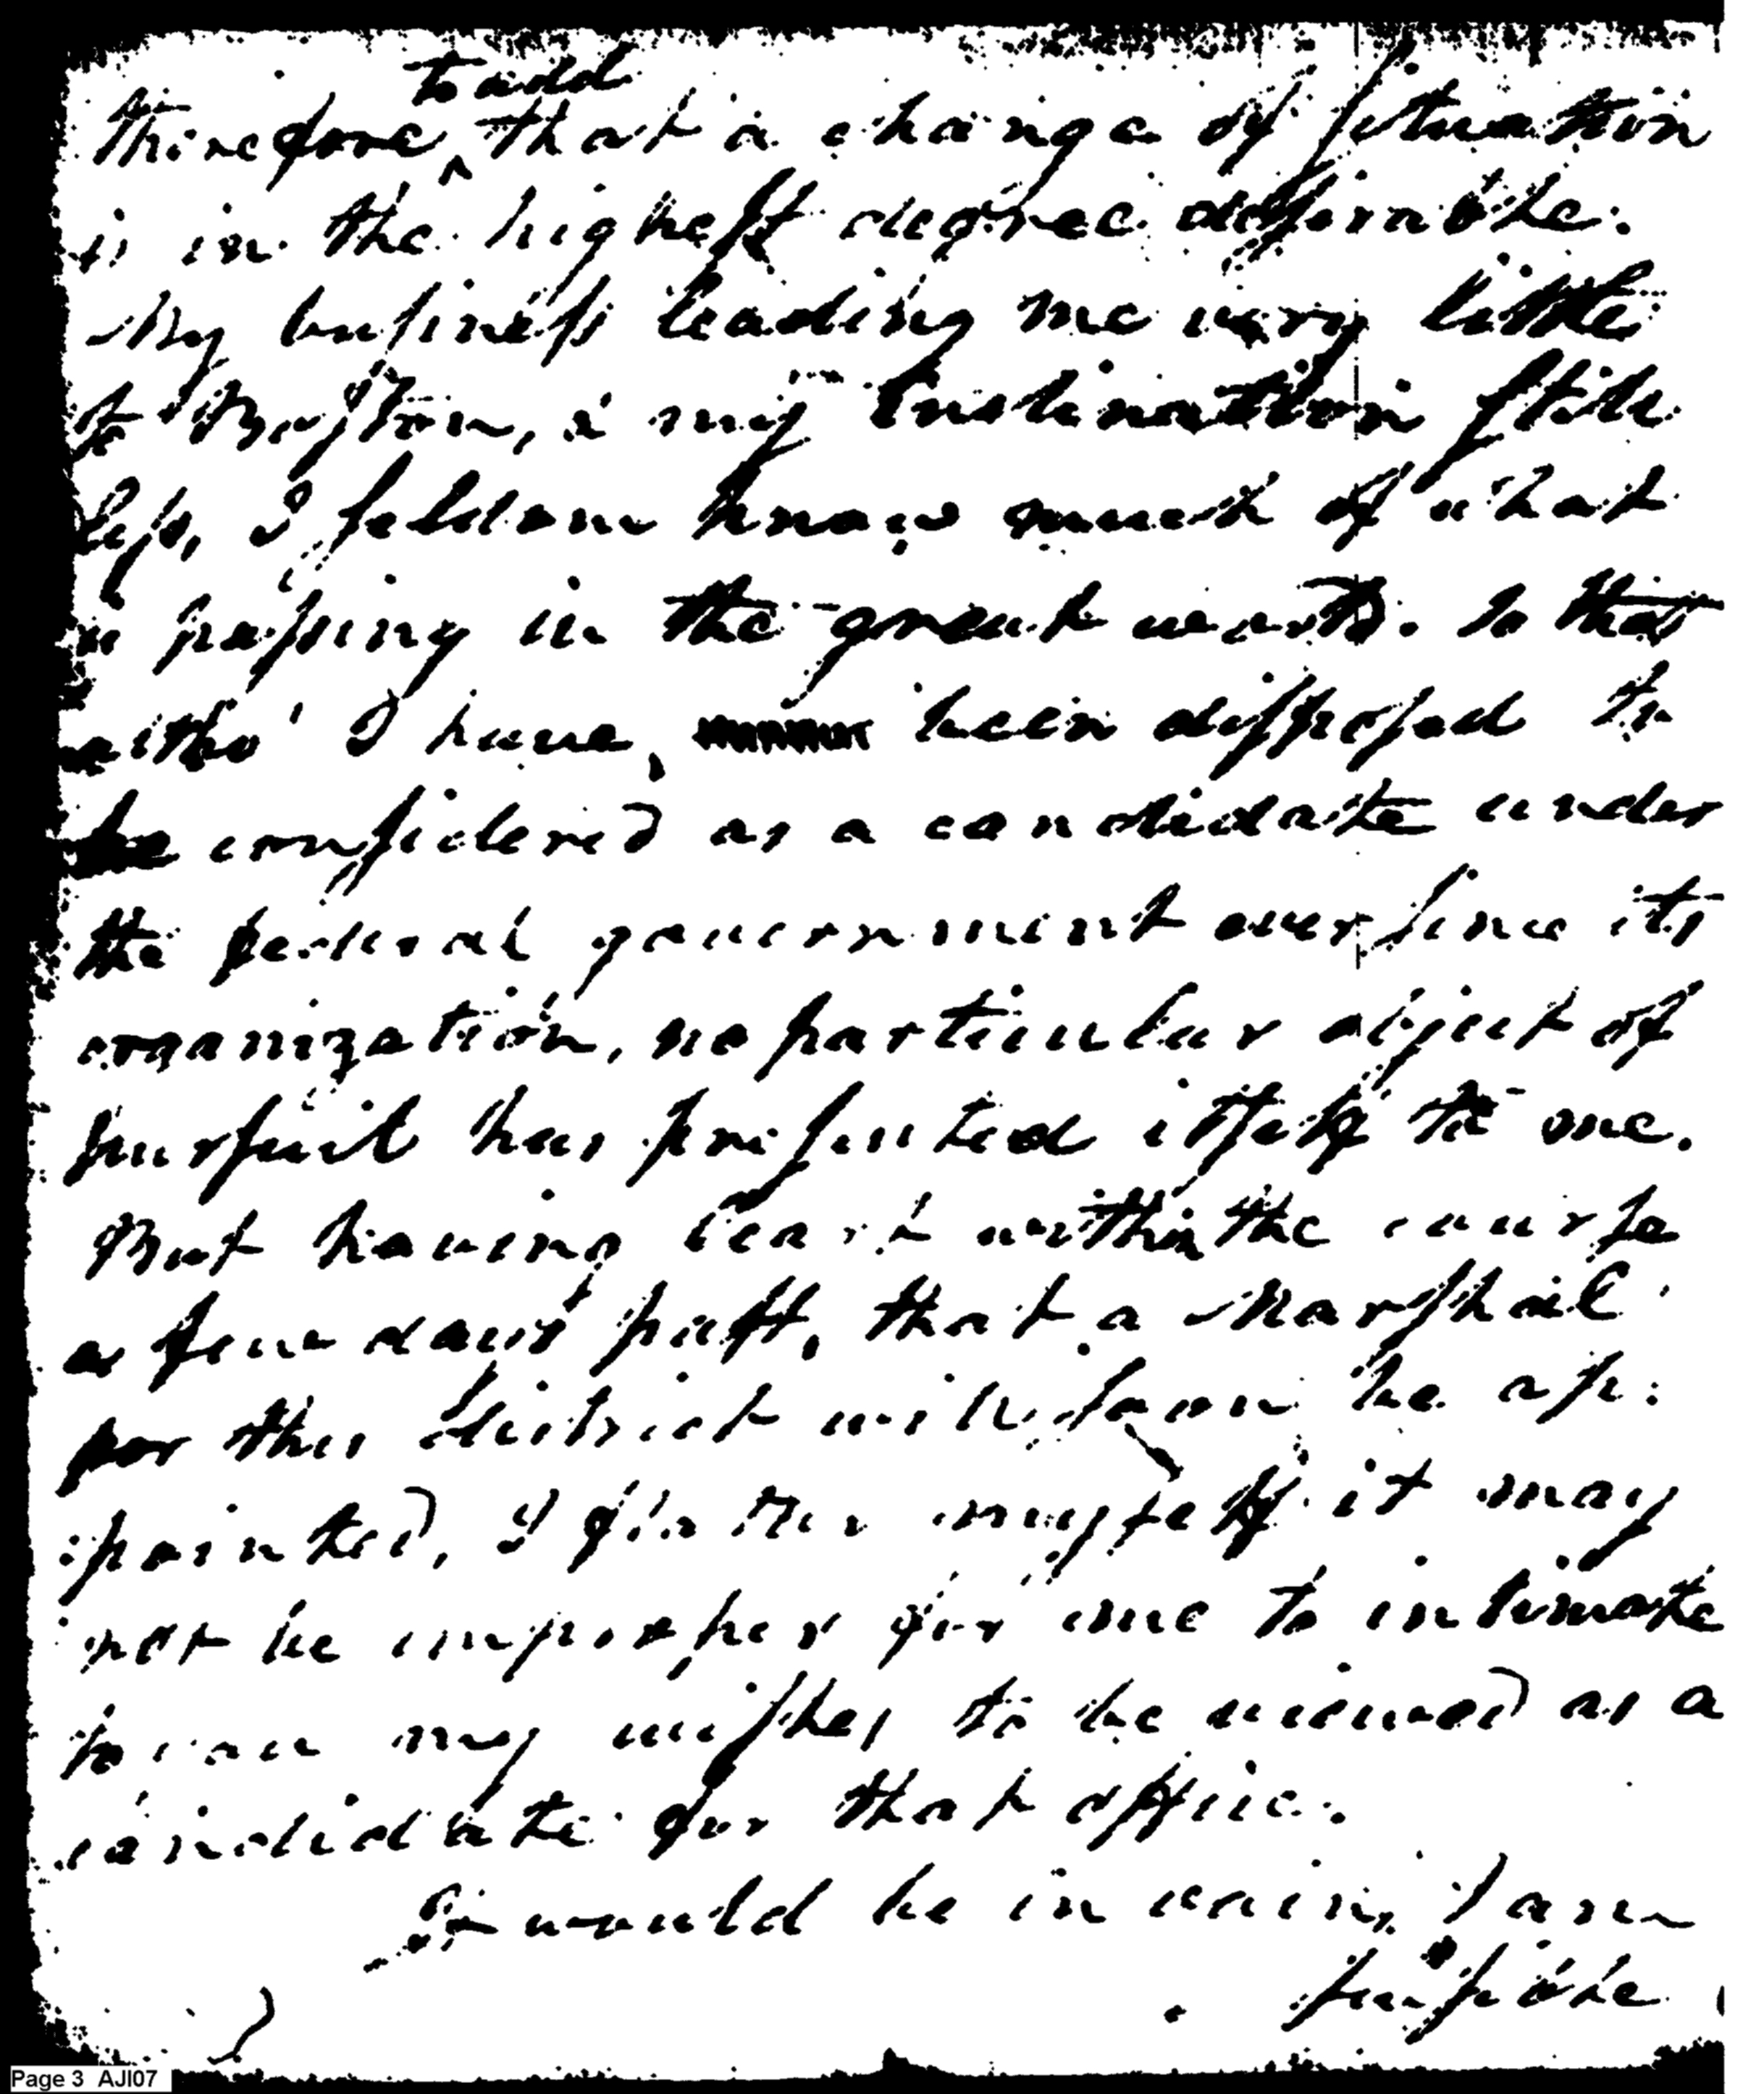 to add
therefore ^ that a change of situation
is in the highest degree desirable.
My business leading me very little
to Boston, & my Inclination still
less, I seldom know much of what
is passing in the great world. So that
altho' I have, been disposed to
be considered as a candidate under
the federal government ever since its
organization, no particular object of
pursuit has presented itself to me.
But having learnt within the course
a few days past, that a Marshal
for this district will soon be ap:
:pointed, I flatter myself it may
not be improper for me to intimate
to you my wishes to be viewed as a
candidate for that office.
It would be in vain, I am
sensible
Page 3 AJI07